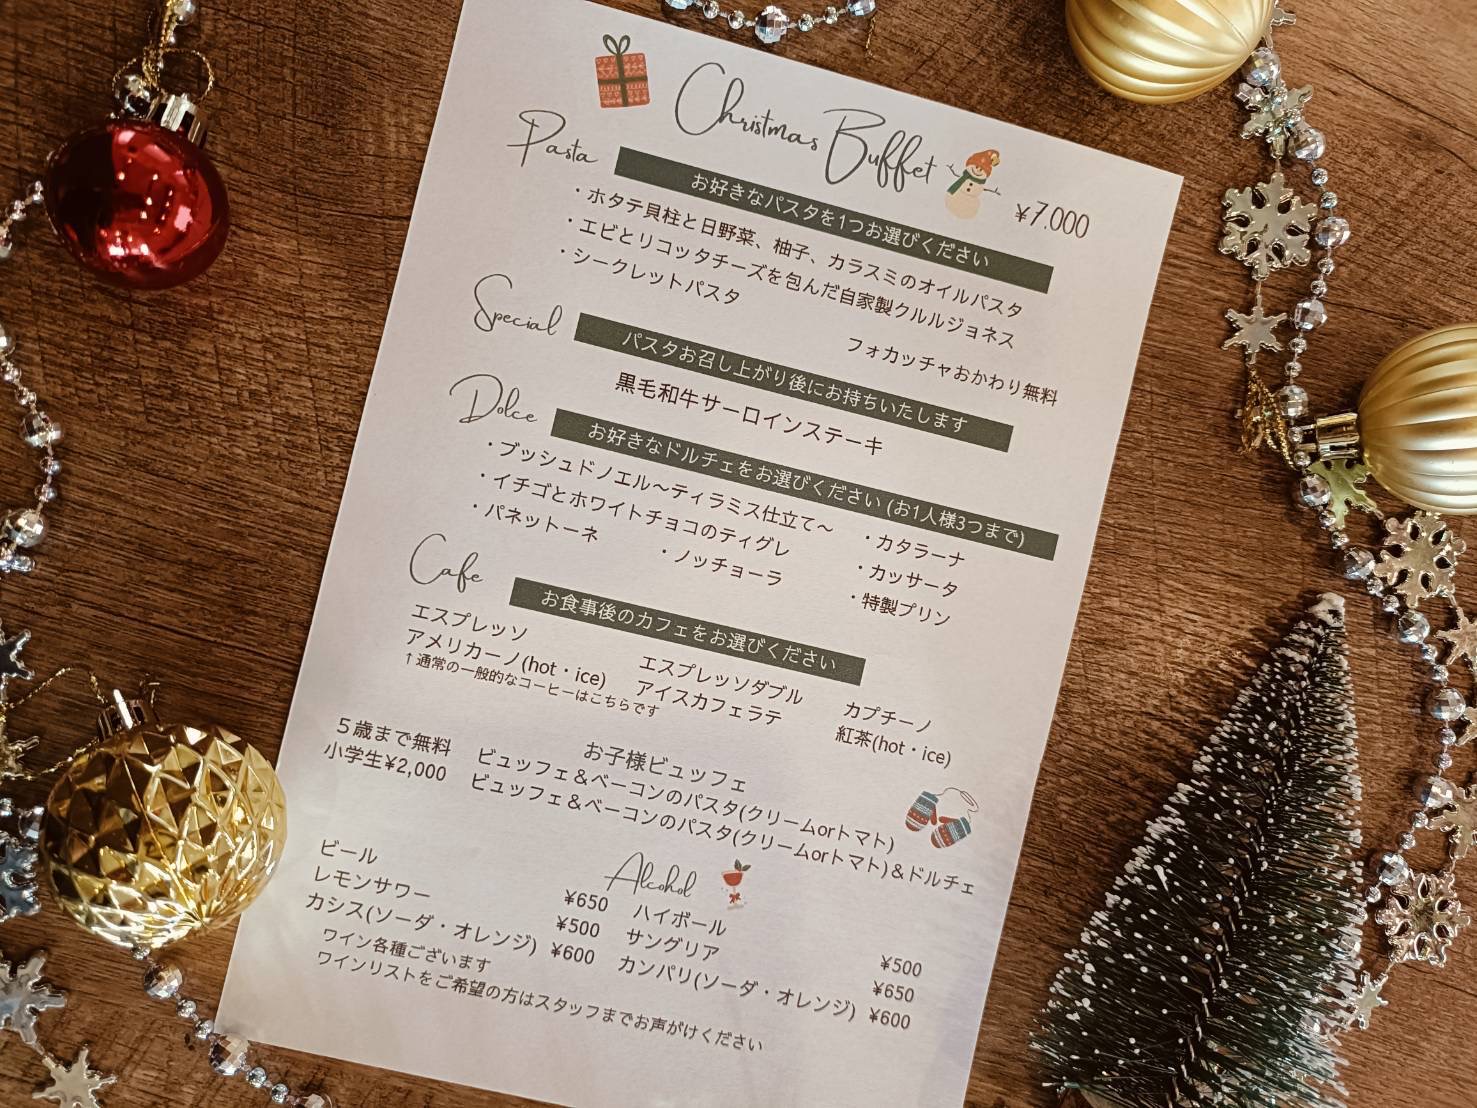 Christmas Buffet
¥7.000
Pasta
お好きなパスタを1つお選びください
・ホタテ貝柱と日野菜、柚子、カラスミのオイルパスタ
・エビとリコッタチーズを包んだ自家製クルルジョネス
・シークレットパスタ
フォカッチャおかわり無料
Special
パスタお召し上がり後にお持ちいたします
黒毛和牛サーロインステーキ
Dolce
お好きなドルチェをお選びください (お1人様3つまで)
・ブッシュドノエル〜ティラミス仕立て〜
・カタラーナ
・イチゴとホワイトチョコのティグレ
・カッサータ
・パネットーネ
・ノッチョーラ
・特製プリン
Cafe
お食事後のカフェをお選びください
エスプレッソ
エスプレッソダブル
カプチーノ
アメリカーノ(hot・ice)
アイスカフェラテ
紅茶(hot・ice)
↑通常の一般的なコーヒーはこちらです
お子様ビュッフェ
５歳まで無料
ビュッフェ＆ベーコンのパスタ(クリームorトマト)
小学生¥2,000
ビュッフェ＆ベーコンのパスタ(クリームorトマト)＆ドルチェ
Alcohol
ビール ¥650
ハイボール ¥500
レモンサワー ¥500
サングリア ¥650
カシス(ソーダ・オレンジ) ¥600
カンパリ(ソーダ・オレンジ) ¥600
ワイン各種ございます
ワインリストをご希望の方はスタッフまでお声がけください